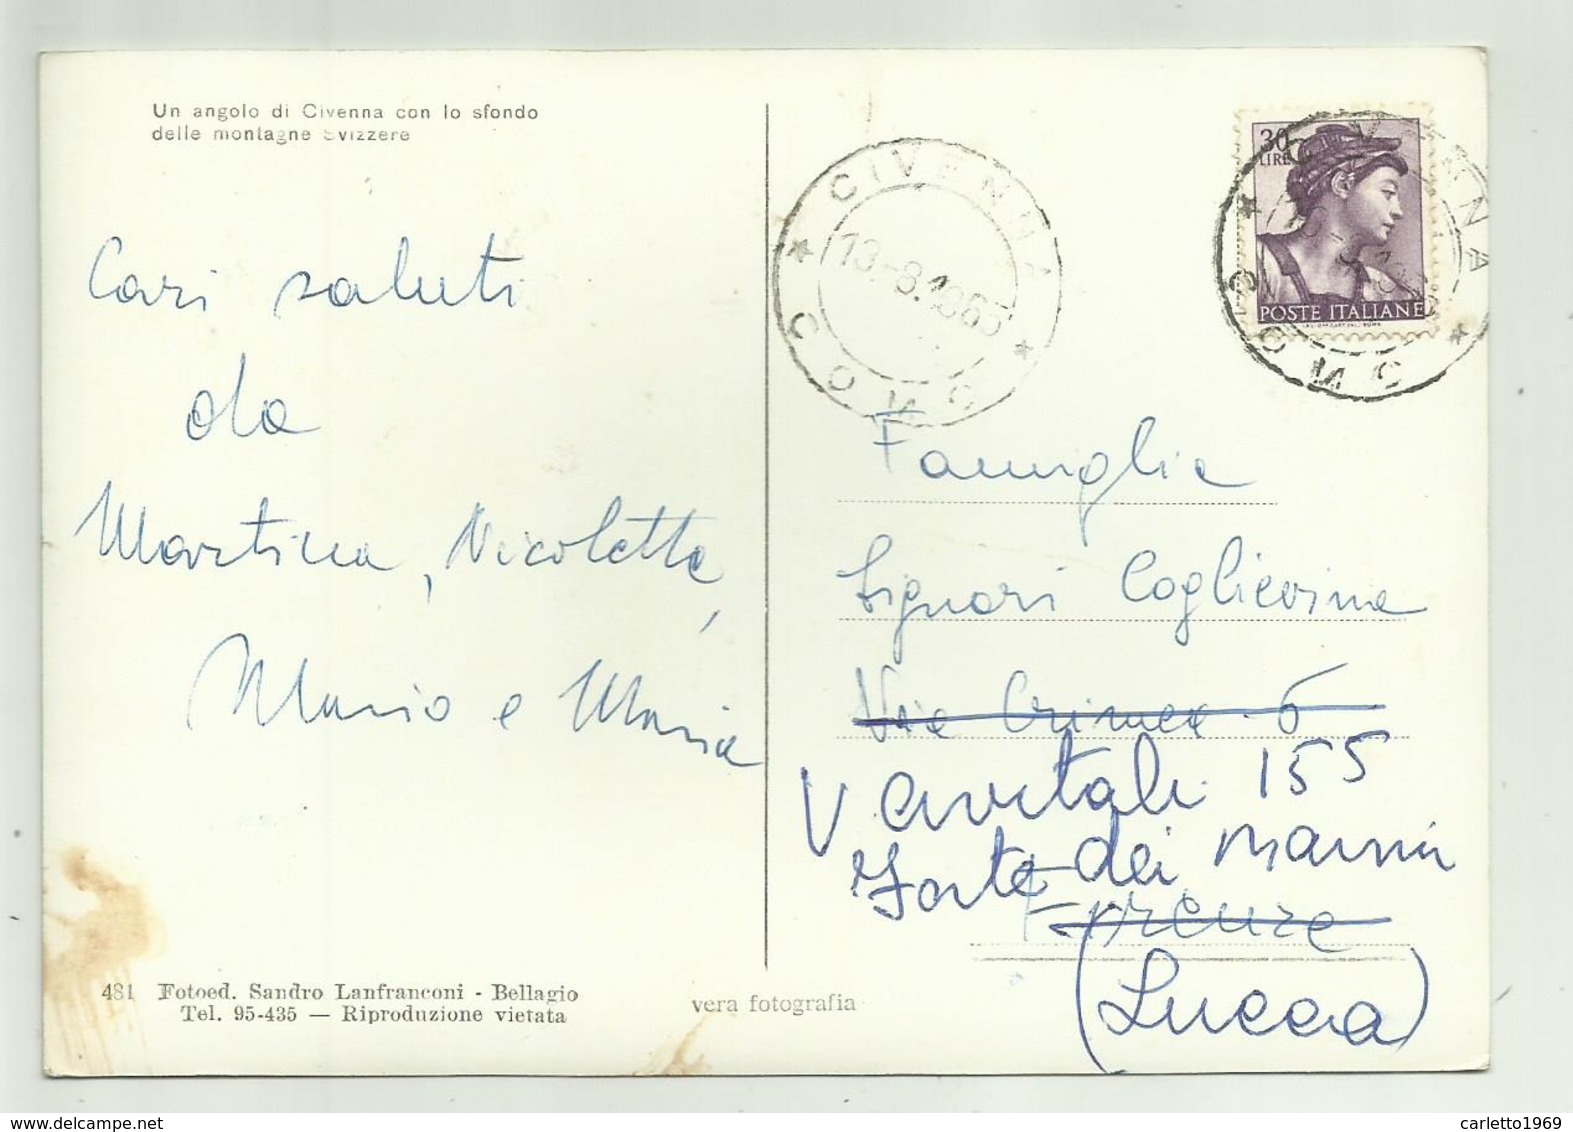 Un angolo di Civenna con lo sfondo
delle montagne Svizzere
Cari saluti
da
Martina, Nicoletta,
Mario e Maria
481 Fotoed. Sandro Lanfranconi - Bellagio
Tel. 95-435 — Riproduzione vietata
vera fotografia
CIVENNA
13-8.1965
COMO
30
LIRE
POSTE ITALIANE
CIVENNA
COMO
Famiglia
Signori Coglievina
Via Crimea 6
V Civitali 155
Forte dei Marmi
Firenze
(Lucca)
carletto1969